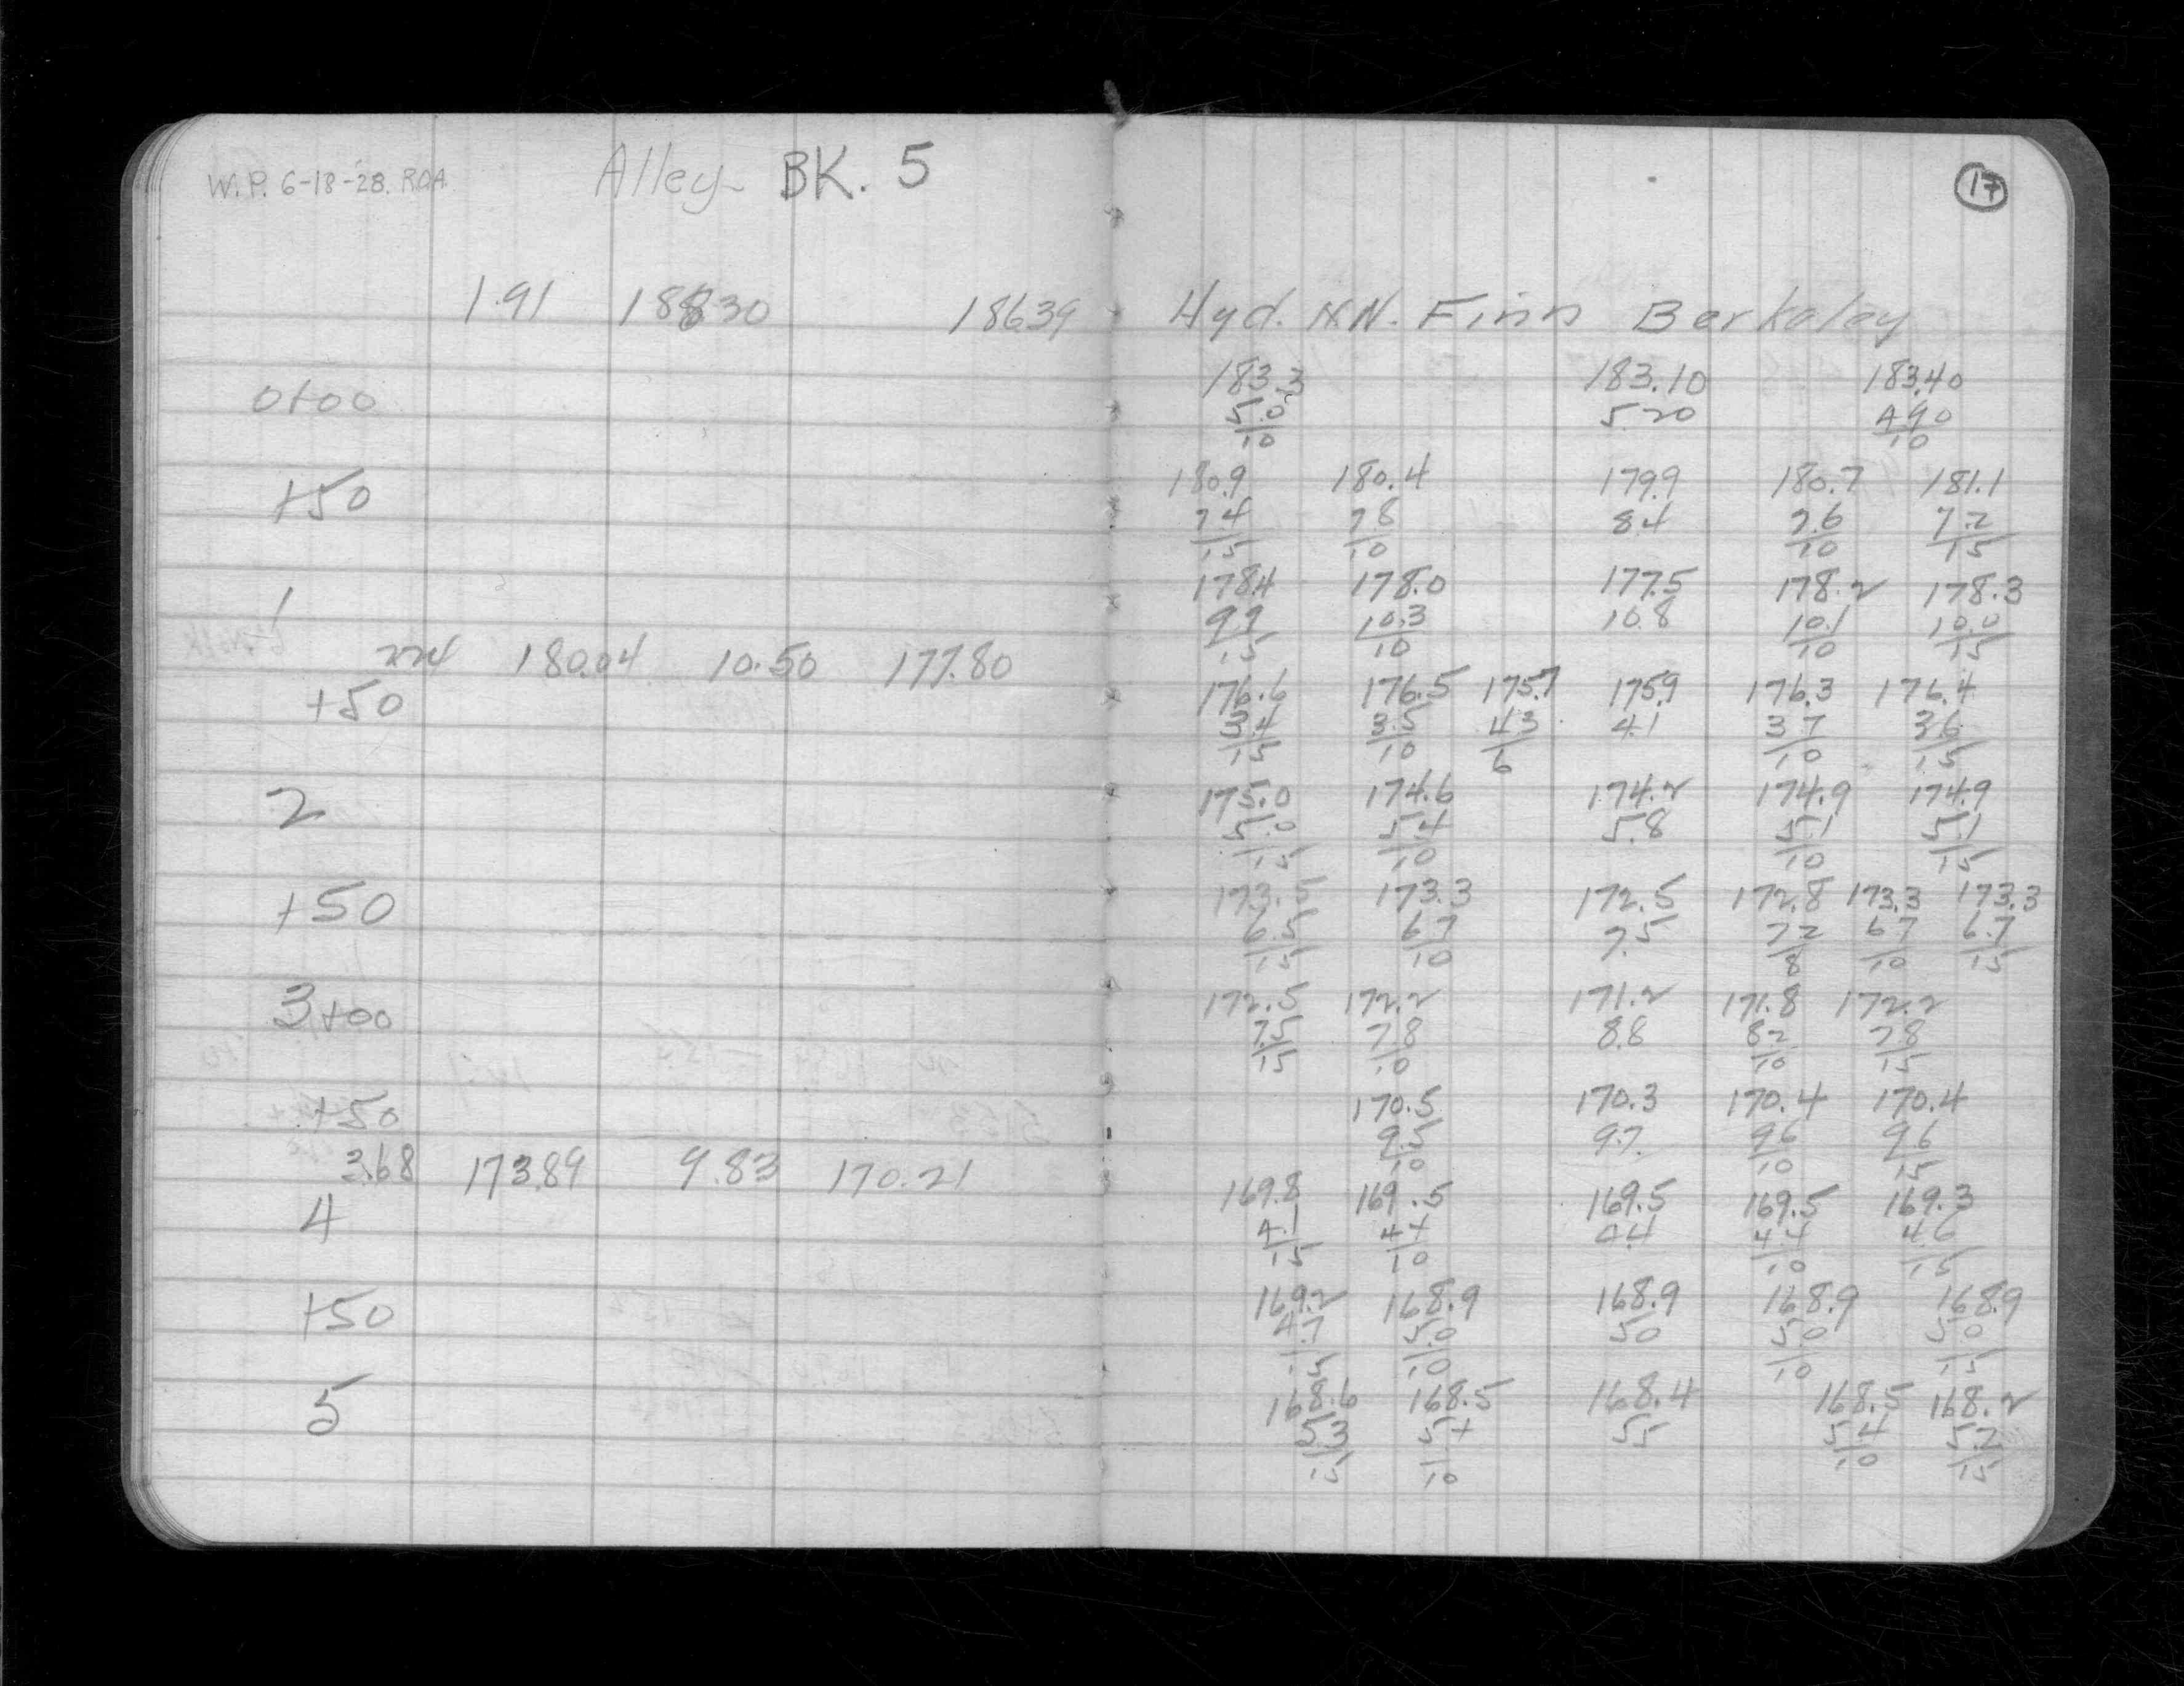 W.P. 6-18-28. R.O.A. Alley BK. 5
17
1.91 188.30 186.39 Hyd. N.N. Finn Berkeley
183.3 183.10 183.40
0+00 5.0 5.20 4.90
10 10
180.9 180.4 179.9 180.7 181.1
+50 7.4 7.8 8.4 7.6 7.2
15 10 10 15
178.4 178.0 177.5 178.2 178.3
1 9.9 10.3 10.8 10.1 10.0
15 10 10 15
2.24 180.04 10.50 177.80
176.6 176.5 175.7 175.9 176.3 176.4
+50 3.4 3.5 4.3 4.1 3.7 3.6
15 10 6 10 15
175.0 174.6 174.2 174.9 174.9
2 5.0 5.4 5.8 5.1 5.1
15 10 10 15
173.5 173.3 172.5 172.8 173.3 173.3
+50 6.5 6.7 7.5 7.2 6.7 6.7
15 10 8 10 15
172.5 172.2 171.2 171.8 172.2
3+00 7.5 7.8 8.8 8.2 7.8
15 10 10 15
170.5 170.3 170.4 170.4
+50 9.5 9.7 9.6 9.6
10 10 15
3.68 173.89 9.83 170.21
169.8 169.5 169.5 169.5 169.3
4 4.1 4.4 4.4 4.4 4.6
15 10 10 15
169.2 168.9 168.9 168.9 168.9
+50 4.7 5.0 5.0 5.0 5.0
15 10 10 15
168.6 168.5 168.4 168.5 168.2
5 5.3 5.4 5.5 5.4 5.2
15 10 10 15